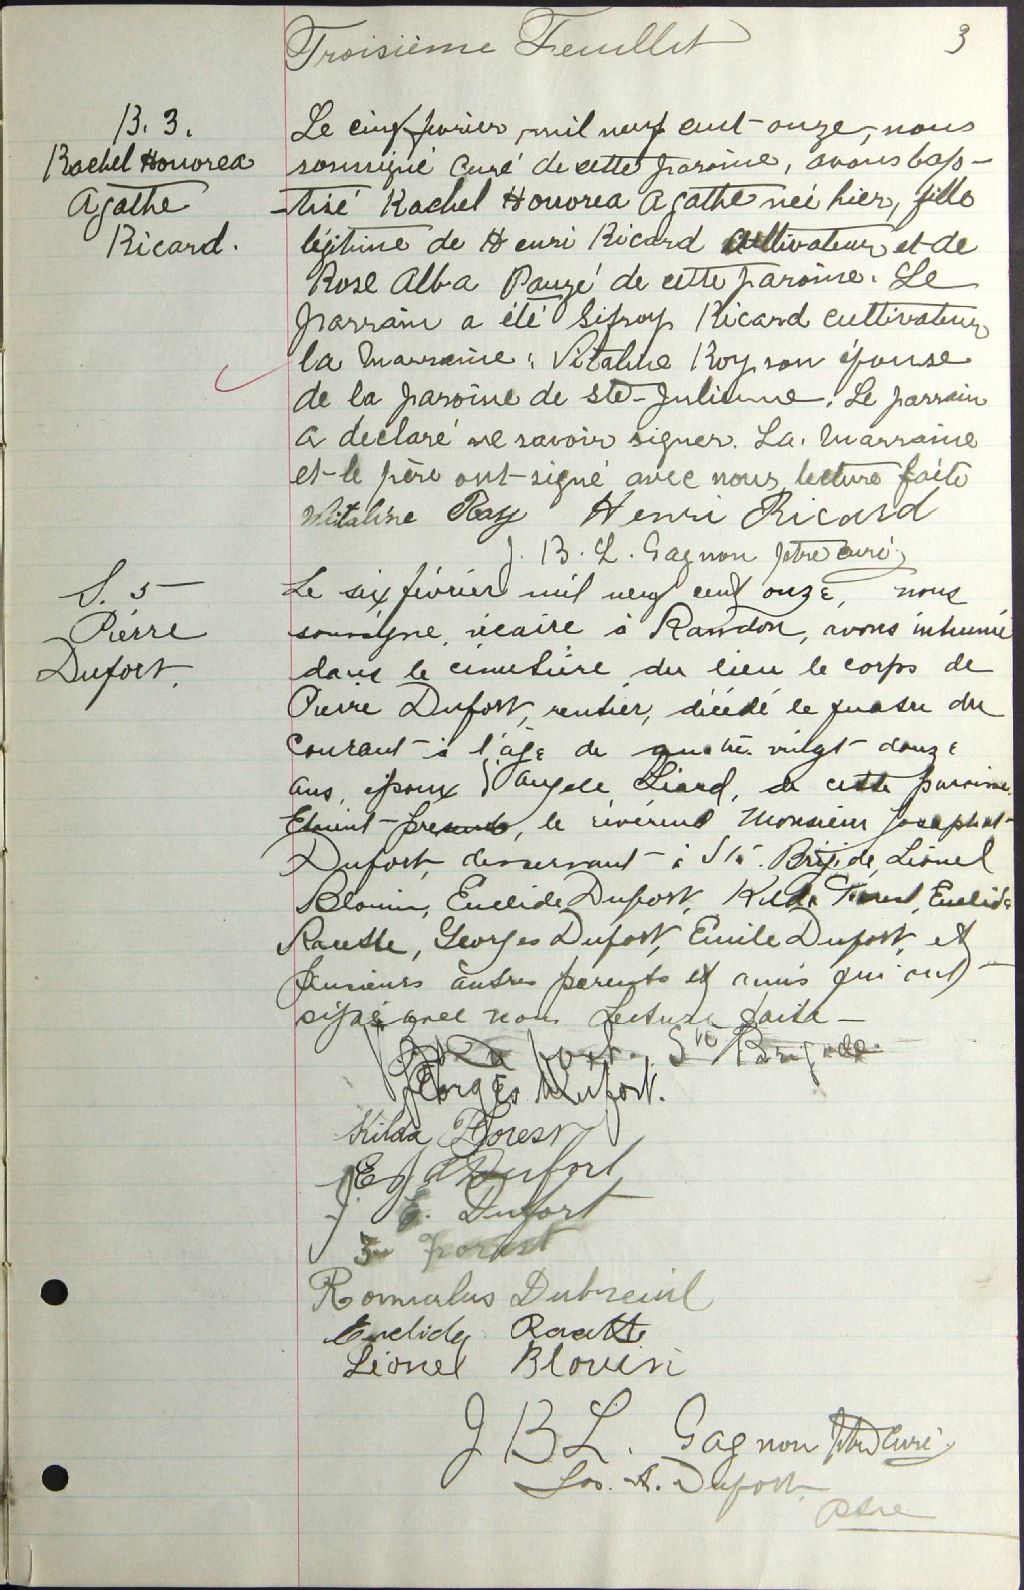 Troisième Feuillet
3
B. 3.
Rachel Honorea
Agathe
Ricard.
Le cinq février, mil neuf cent onze, nous
soussigné Curé de cette paroisse, avons bap-
-tisé Rachel Honorea Agathe née hier, fille
légitime de Henri Ricard cultivateur et de
Rose Alba Pauzé de cette paroisse. Le
parrain a été Sifroy Ricard cultivateur
la marraine: Vitaline Roy son épouse
de la paroisse de Ste-Julienne. Le parrain
a déclaré ne savoir signer. La marraine
et le père ont signé avec nous, lecture faite
Vitaline Roy Henri Ricard
J. B. L. Gagnon ptre curé
S. 5
Pierre
Dufort.
Le six février mil neuf cent onze, nous
soussigné, vicaire à Rawdon, avons inhumé
dans le cimetière du lieu le corps de
Pierre Dufort, rentier, décédé le quatre du
courant à l'âge de quatre vingt douze
ans, époux d'Angèle Liard, de cette paroisse.
Etaient présents, le révérend Monsieur Josaphat
Dufort, desservant à Ste. Brigide, Lionel
Blouin, Euclide Dufort, Kilda Forest, Euclide
Racette, Georges Dufort, Emile Dufort, et
plusieurs autres parents et amis qui ont
signé avec nous Lecture faite —
Ste Brigide
Georges Dufort.
Kilda Forest
E. J. Dufort
J. E. Dufort
Forest
Romulus Dubreuil
Euclide Racette
Lionel Blouin
J B L. Gagnon Ptre Curé
Jos. A. Dufort
Ptre